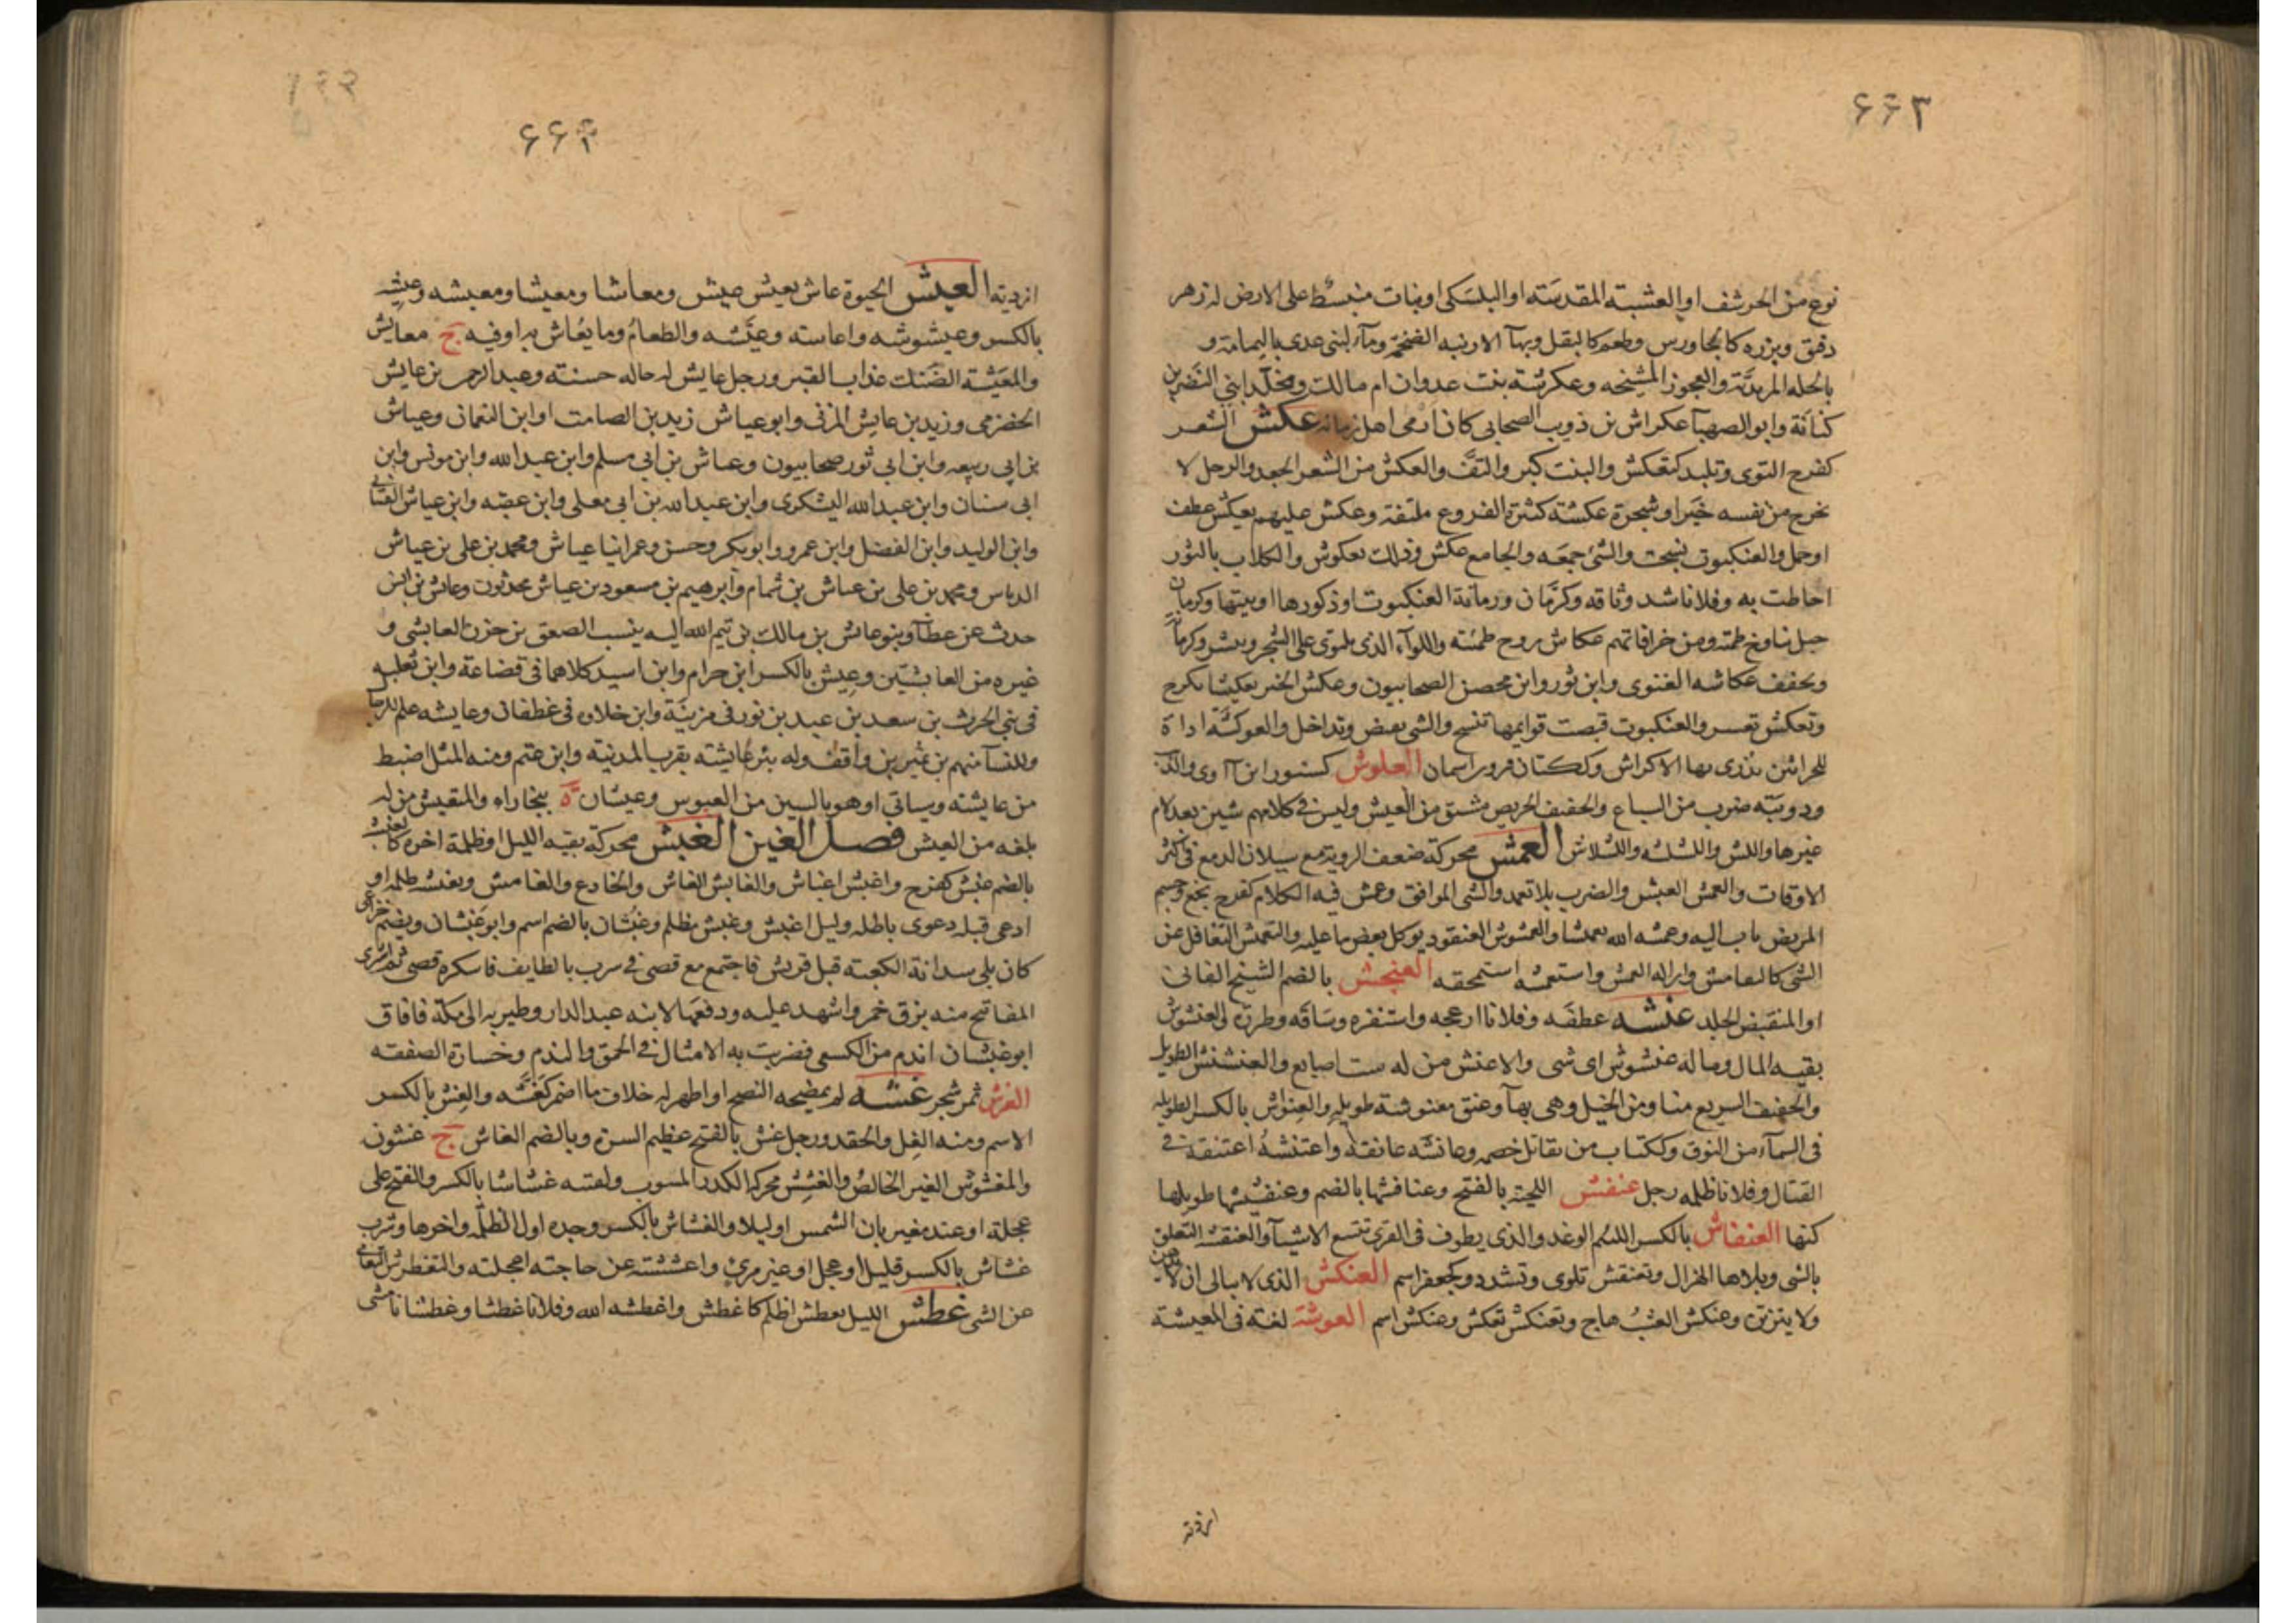 ۶۶۳
نوع من الحرشف او العشبته المقدسته او البلسكى او نبات منبسط على الارض له زهر
دقيق وبزره كالجاورس وطعم كالبقل وبهآ الارنبه الضخمة ومآء لبنى عدى باليمامة و
بالحله المزيديّة والعجوز المشيخه وعكرشة بنت عدوان ام مالك ومخلّد ابنى النضر بن
كنانة وابو الصهبآ عكراش بن ذويب الصحابى كان ارمى اهل زمانه عكش الشعر
كفرح التوى وتلبد كتعكش والبنت كبر والتفّ والعكش من الشعر الجعد والرجل لا
يخرج من نفسه خيرا وشجرة عكشة كثيرة الفروع ملتفة وعكش عليهم يعكش عطف
او حمل والعنكبوت نسجت والشئ جمعه والجامع عكش وذلك بعكوش والكلاب بالثور
احاطت به وفلانا شد وثاقه وكرمّان ورمانة العنكبوت او ذكورها او بيتها وكرمان
جبل نناوح طمته ومن خرافاتهم عكاش زوج طمته واللوآء الذى يلتوى على الشجر وينشر وكرمان
ويخفف عكاشه الغنوى وابن ثور وابن محصن الصحابيون وعكش الخبز تعكيشا تكرج
وتعكش تعسر والعنكبوت قبصت قوايمها تنسج والشى بعض وتداخل والعوكشة اداة
للحراثين تذرى بها الاكداش وككتان فرورآسمان العلوش كسنور ابن آوى والذئب
ودويبّه ضرب من السباع والخفيف الحريص مشتق من العيش وليس فى كلامهم شين بعد لام
غيرها واللش واللشلشه واللشلاش العمش محركة ضعف الروية مع سيلان الدمع فى اكثر
الاوقات والعمش العبش والضرب بلا تعمد والشى الموافق وعمش فيه الكلام كفرح نجع وجسم
المريض ثاب اليه وعمشه الله تعمشا والعمشوش العنقود يوكل بعض ما عليه والتعمش التغافل عن
الشى كالتعامش وازاله العمش واستعمشه استحمقه العنجش بالضم الشيخ الفانى
او المنقبض الجلد عنشه عطفه وفلانا ازعجه واستنفزه وساقه وطرده والعنشوش
بقيه المال وما له عنشوش اى شى والاعنش من له ست اصابع والعنشنش الطويل
والخفيف السريع منا ومن الخيل وهى بهآ وعنق معنوشة طويله والعنواش بالكسر الطويله
فى السمآء من النوق وككتاب من يقاتل خصمه وعانشه عانقه واعتنشه اعتنقه فى
القتال وفلانا ظلمه رجل عنفش اللحية بالفتح وعنافشها بالضم وعنفشيشها طويلها
كثها العنفاش بالكسر اللئيم الوغد والذى يطوف فى القرى يتبع الاشيآ والعنقشه التعلق
بالشى وبلاها الهزال وتعنقش تلوى وتشدد وكجعفر اسم العنكش الذى لا يبالى ان لا يدهن
ولا يتزين وعنكش العشب هاج وتعنكش تعكش وعنكش اسم العوشة لغة فى المعيشة
ازدية
۶۶۴
ازدية العيش الحيوة عاش يعيش عيش ومعاشا ومعيشا ومعيشه وعيشه
بالكسر وعيشوشه واعاشه وعيّشه والطعام وما يعاش به او فيه ج معايش
والمعيشة الضنك عذاب القبر ورجل عايش له حاله حسنته وعبد الرحمن بن عايش
الحضرمى وزيد بن عايش المزنى وابو عياش زيد بن الصامت او ابن النعمان وعياش
بن ابى ربيعه وابن ابى ثور صحابيون وعياش بن ابى مسلم وابن عبد الله وابن مونس وابن
ابى سنان وابن عبد الله اليشكرى وابن عبد الله بن ابى معلى وابن عقبه وابن عياش القتبانى
وابن الوليد وابن الفضل وابن عمرو وابو بكر وحسن وعمر ابنا عياش ومحمد بن على بن عياش
الدباس ومحمد بن على بن عياش بن ثمام وابرهيم بن مسعود بن عياش محدثون وعائش بن انس
حدث عن عطآ وبنو عائش بن مالك بن تيم الله اليه ينسب الصعق بن حزن العايشى و
غيره من العايشيّين وعيش بالكسر ابن حرام وابن اسيد كلاهما فى قضاعة وابن ثعلبه
فى بنى الحرث بن سعد بن عبد بن ثور فى مزينة وابن خلاوه فى غطفان وعايشه علم للرجا
وللنسآ منهم بن نمير بن واقف وله بئر عايشته بقرب المدينة وابن عثم ومنه المثل اضبط
من عايشته وسياتى او هو بالسين من العبوس وعيشان ة ببخاراء والمتعيش من له
بلغه من العيش فصل الغين الغبش محركة بقيه الليل او ظلمة اخره كالغبشه
بالضم غبش كفرح واغبش اغباش والغابش الغاش والخادع والغامش وتغبشه ظلمه او
ادعى قبله دعوى باطله وليل اغبش وغبش مظلم وغبشان بالضم اسم وابو غبشان ويضم خزاعى
كان يلى سدانة الكعبته قبل قريش فاجتمع مع قصى فى شرب بالطايف فاسكره قصى ثم اشترى
المفاتيح منه بزق خمر واشهد عليه ودفعها لابنه عبد الدار وطير به الى مكة فافاق
ابو غبشان اندم من الكسعى فضربت به الامثال فى الحمق والندم وخسارة الصفقه
الغرش ثمر شجر غشه لم يمضحه النصح او اظهر له خلاف ما اضمر كغششه والغش بالكسر
الاسم ومنه الغل والحقد ورجل غش بالفتح عظيم السرة وبالضم الغاش ج غشون
والمغشوش الغير الخالص والغشش محركة الكدر المشوب ولقته غشاشا بالكسر والفتح على
عجلة او عند مغيربان الشمس او ليلا والغشاش بالكسر وحده اول الظلمه واخرها وشرب
غشاش بالكسر قليل او عجل او غير مرئ واغششته عن حاجته اعجلته والتغطرش التعامى
عن الشى غطش الليل يغطش اظلم كاغطش واغطشه الله وفلانا غطشا وغطشانا مشى